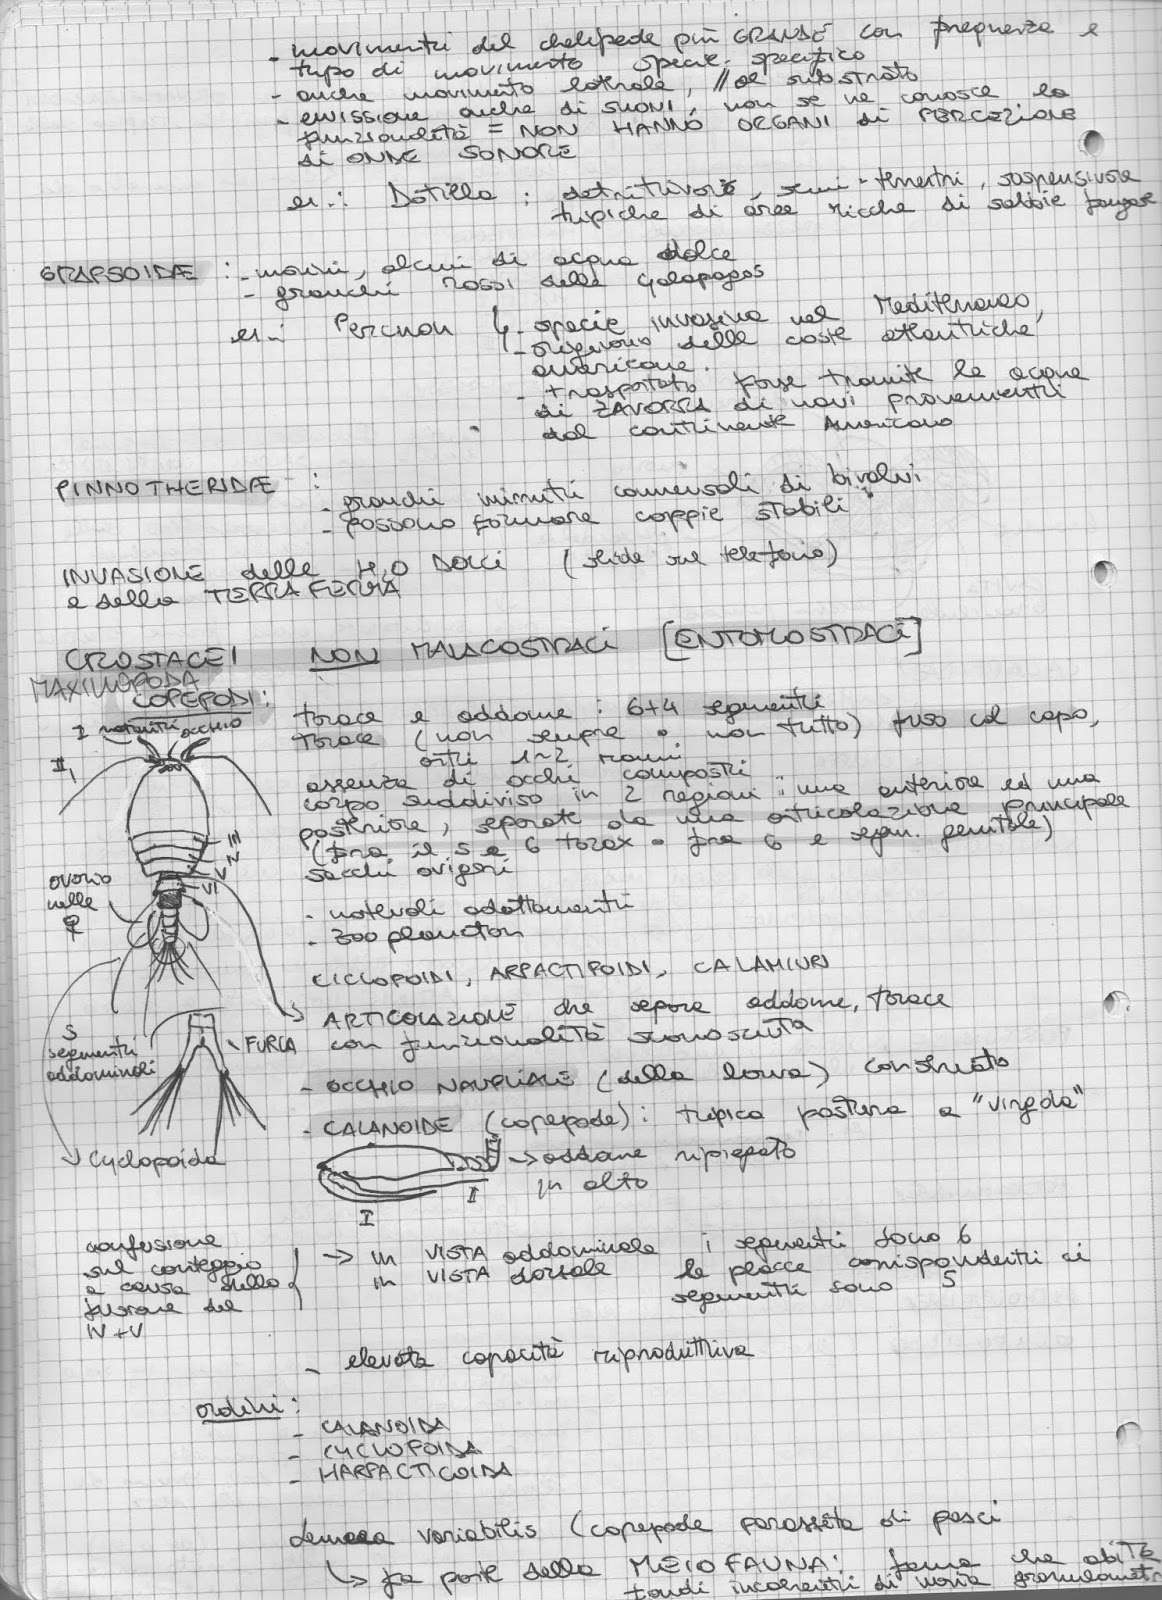 - movimenti del chelipede più GRANDE con frequenza e
tipo di movimento specie-specifico
- anche movimento laterale, // al substrato
- emissione anche di SUONI, non se ne conosce la
funzionalità = NON HANNO ORGANI di PERCEZIONE
di ONDE SONORE
es.: Dotilla: detritivore, semi-terrestri, sospensivore
tipiche di aree ricche di sabbie fangose
GRAPSOIDAE : - marini, alcuni di acqua dolce
- granchi rossi delle Galapagos
es.: Percnon - specie INVASIVA nel Mediterraneo,
- originario delle coste atlantiche
americane.
- trasportato forse tramite le acque
di ZAVORRA di navi provenienti
dal continente Americano
PINNOTHERIDAE :
- granchi minuti commensali di bivalvi
- possono formare coppie stabili
INVASIONE delle H2O DOLCI (slide sul telefono)
e della TERRAFERMA
CROSTACEI NON MALACOSTRACI [ENTOMOSTRACI]
MAXILLOPODA
COPEPODI:
torace e addome : 6+4 segmenti
torace (non sempre o non tutto) fuso col capo,
arti 1-2 rami
assenza di occhi composti
corpo suddiviso in 2 regioni: una anteriore ed una
posteriore, separate da una articolazione principale
(fra il 5 e 6 torax o fra 6 e segm. genitale)
sacchi ovigeri
- notevoli adattamenti
- zooplancton
CICLOPOIDI, ARPACTIPOIDI,
ARTICOLAZIONE che separa addome, torace
con funzionalità sconosciuta
- OCCHIO NAUPLIALE (della larva) conservato
- CALANOIDE (copepode): tipica postura a "virgola"
→ addome ripiegato
in alto
I
II
I
occhio
II
III
V
VI
ovario
nelle
♀
5
segmenti
addominali
FURCA
Cyclopoida
confusione
sul conteggio
a causa della
fusione del
IV+V
→ in VISTA addominale i segmenti sono 6
in VISTA dorsale le placce corrispondenti ai
segmenti sono 5
- elevata capacità riproduttiva
ordini:
- CALANOIDA
- CYCLOPOIDA
- HARPACTICOIDA
variabilis (copepode parassita di pesci
↳ fa parte della MEIOFAUNA: fauna che abita
fondi incoerenti di varia granulometr